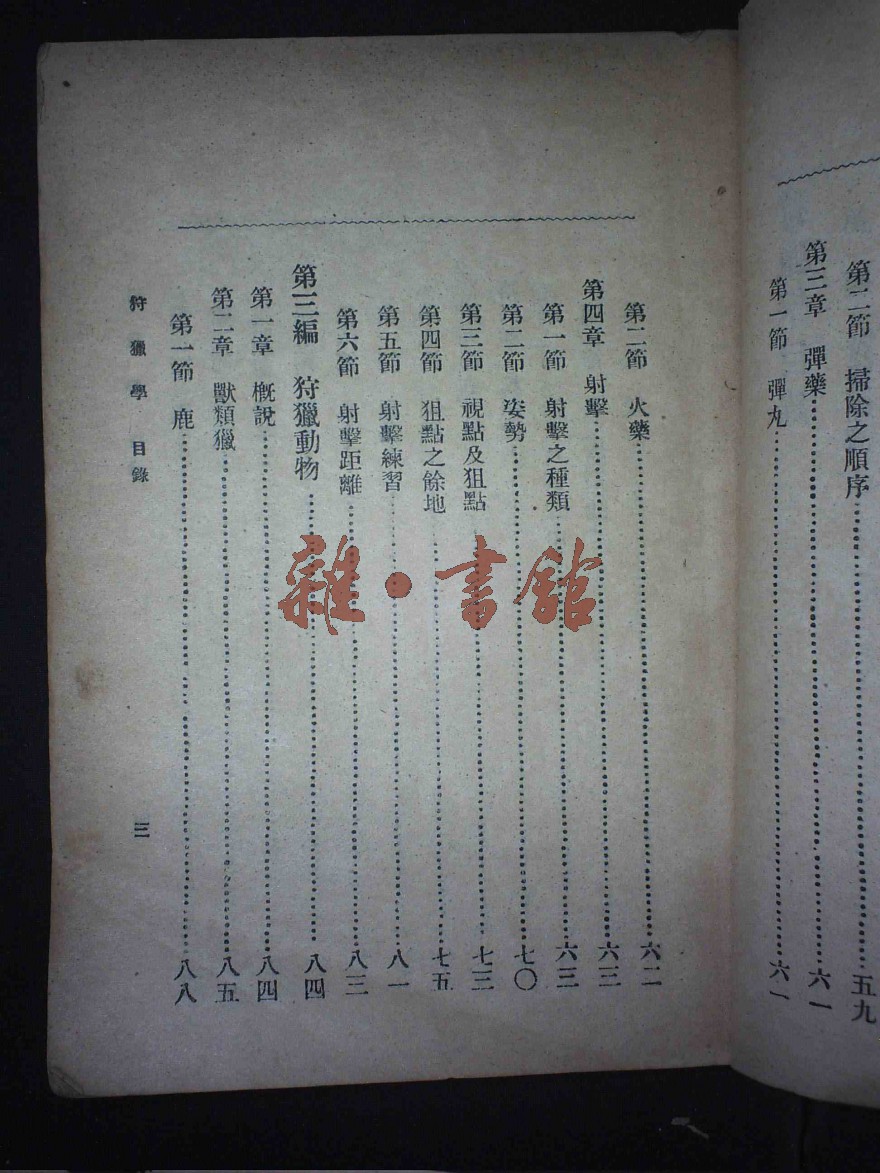 第二節 掃除之順序 五九
第三章 彈藥 六一
第一節 彈丸 六一
第二節 火藥 六二
第四章 射擊 六三
第一節 射擊之種類 六三
第二節 姿勢 七〇
第三節 視點及狙點 七三
第四節 狙點之餘地 七五
第五節 射擊練習 八一
第六節 射擊距離 八三
第三編 狩獵動物 八四
第一章 概說 八四
第二章 獸類獵 八五
第一節 鹿 八八
狩獵學 目錄 三
雜·書館